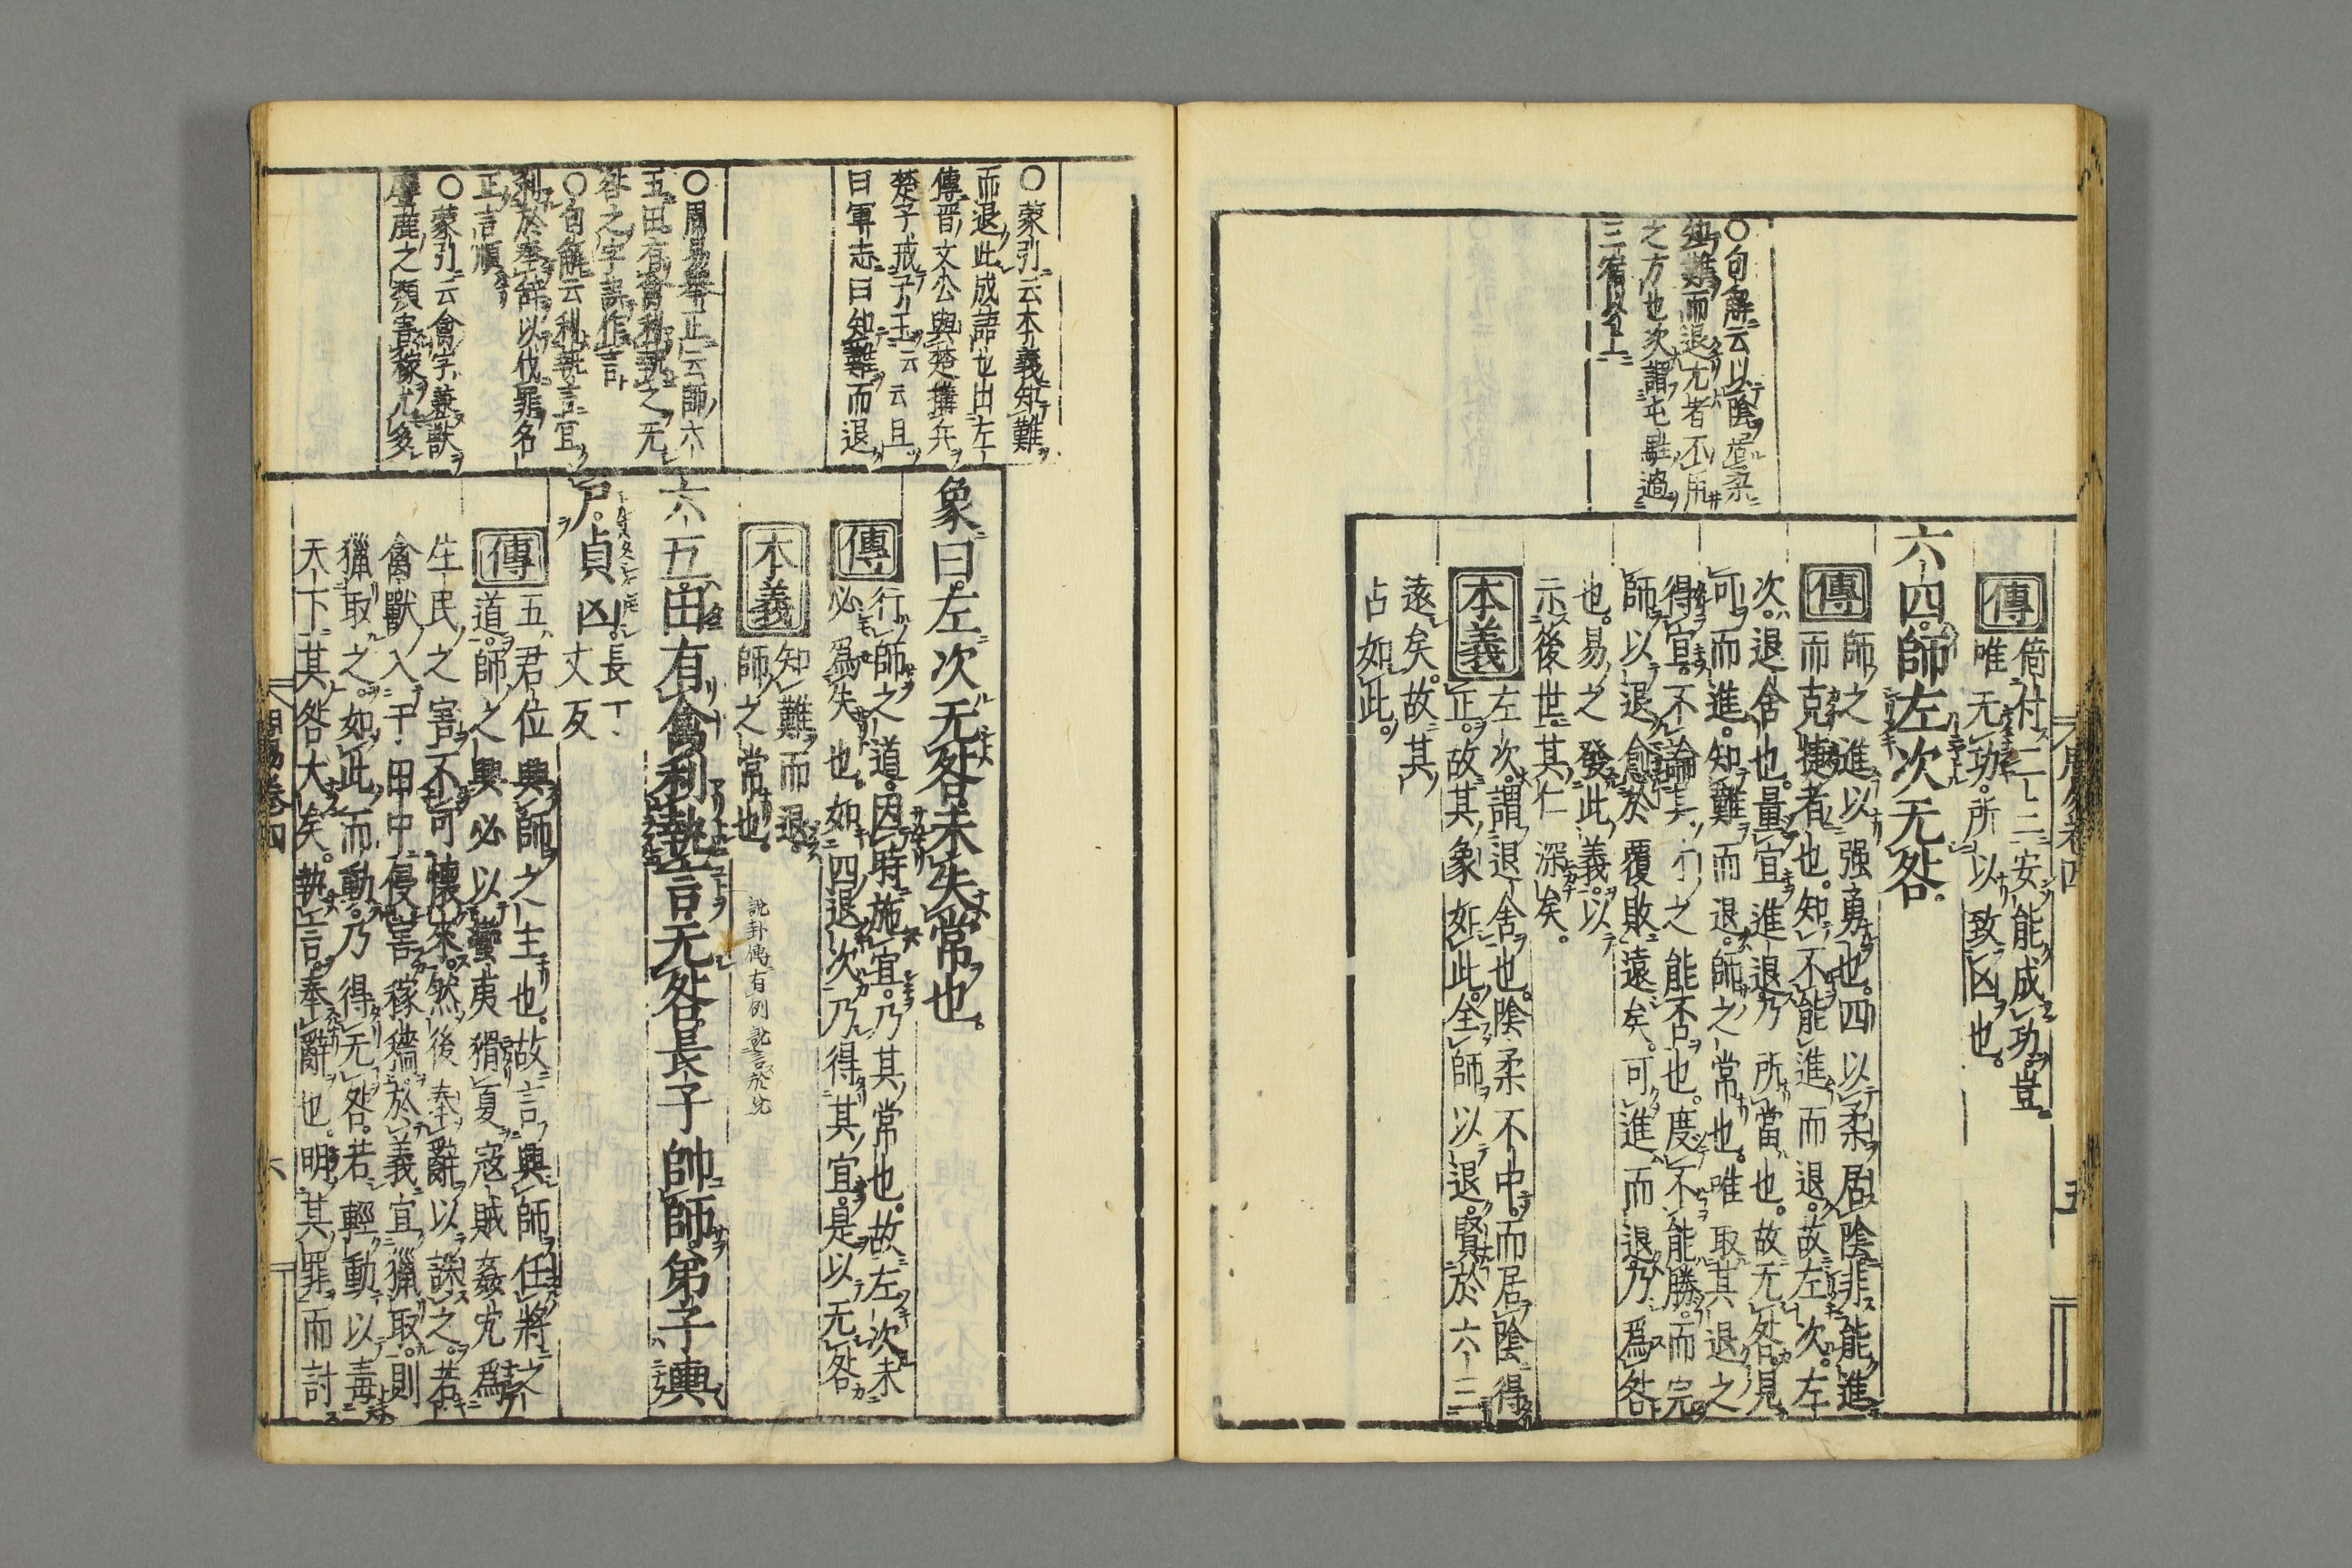 倚付二三安能成功豈
唯无功所以致凶也
六四師左次无咎
傳
師之進以强勇也四以柔居陰非能進
而克捷者也知不能進而退故左次左
次退舍也量宜進退乃所當也故无咎見
可而進知難而退師之常也唯取其退之
得宜不論其才之能否也度不能勝而完
師以退愈於覆敗遠矣可進而退乃爲咎
也易之發此義以
示後世其仁深矣
本義
左次謂退舍也陰柔不中而居陰得
正故其象如此全師以退賢於六三
遠矣故其
占如此
○句解云以陰居柔
知難而退左者不用
之方也次謂屯駐過
三宿以上
周易卷四
五
象曰左次无咎未失常也
傳
行師之道因時施宜乃其常也故左次未
必爲失也如四退次乃得其宜是以无咎
本義
知難而退
師之常也
六五田有禽利執言无咎長子帥師弟子輿
尸貞凶
長丁
丈反
傳
五君位興師之主也故言興師任將之
道師之興必以蠻夷猾夏寇賊姦宄爲
生民之害不可懷來然後奉辭以誅之若
禽獸入于田中侵害稼穡於義宜獵取則
獵取之如此而動乃得无咎若輕動以毒
天下其咎大矣執言奉辭也明其罪而討
○蒙引云本義知難
而退此成語也出左
傳晋文公與楚搆兵
楚子戒子玉云云且
曰軍志曰知難而退
○周易擧正云師六
五田有禽利執之无
咎之字誤作言
○句解云利執言宜
利於奉辭以伐罪名
正言順
○蒙引云禽字兼獸
麋鹿之類害稼尤多
周易卷四
六